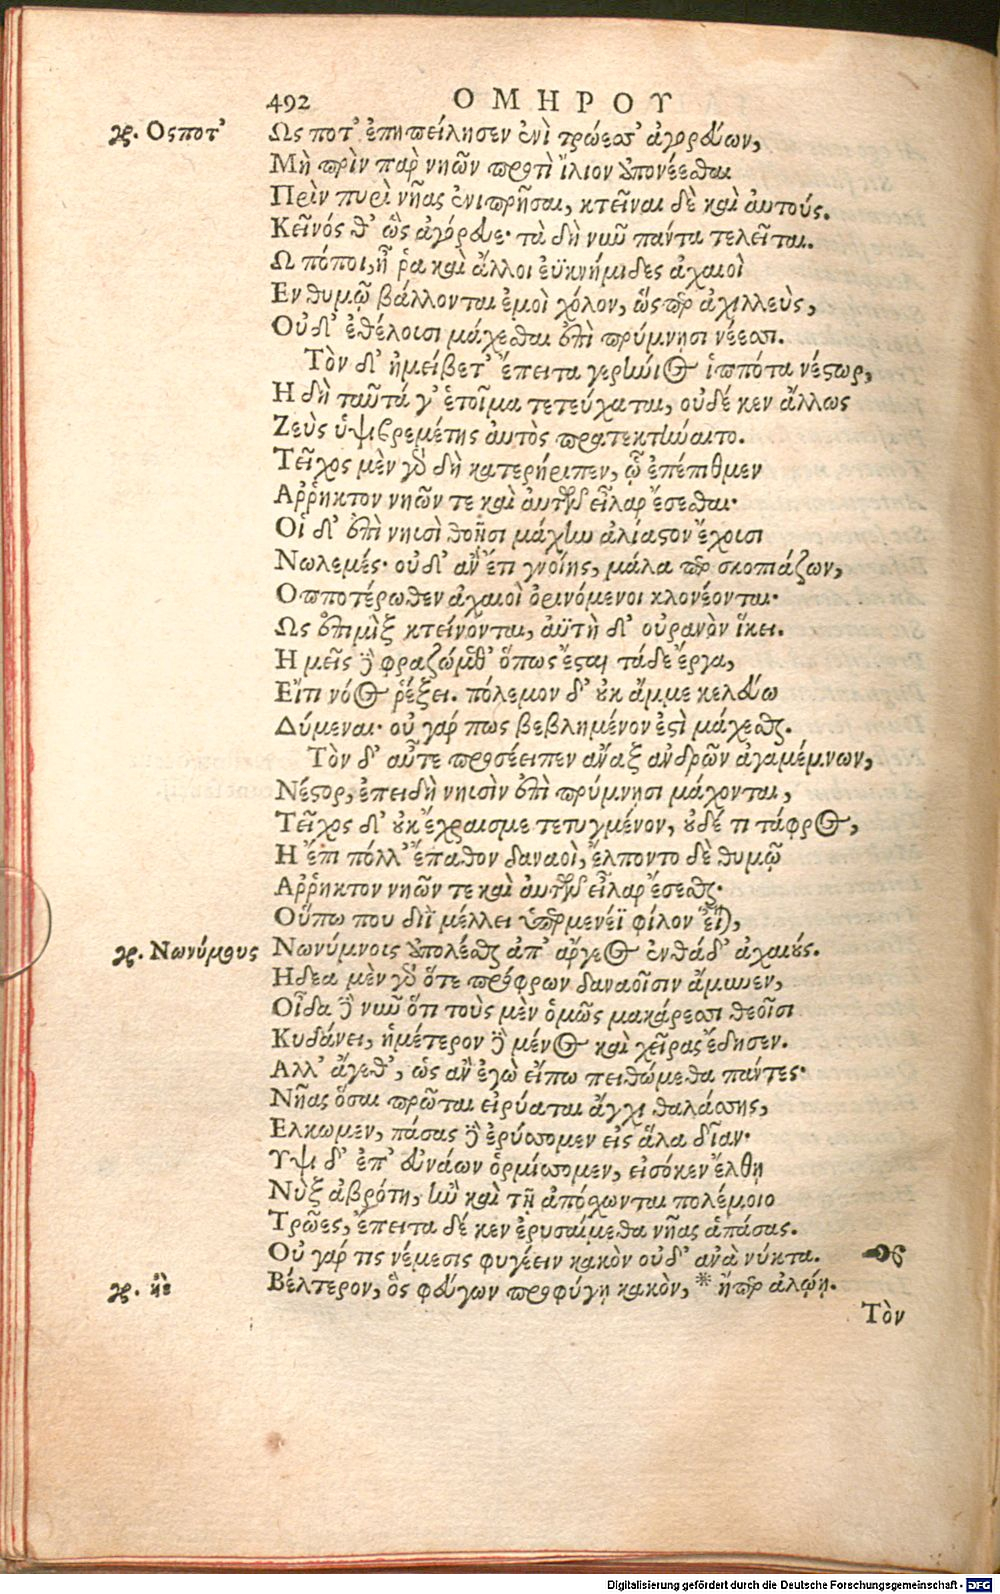 492 ΟΜΗΡΟΥ
γρ. Οςποτ' Ως ποτ' ἐπηπείλησεν ἐνὶ τρώεσσ' ἀγορεύων,
Μὴ πρὶν πὰρ νηῶν προτὶ ἴλιον ἀπονέεσθαι
Πρὶν πυρὶ νῆας ἐνιπρῆσαι, κτεῖναι δὲ καὶ ἀυτούς.
Κεῖνός θ' ὣς ἀγόρευε· τὰ δὴ νιῦ πάντα τελεῖται.
Ω πόποι, ἦ ῥα καὶ ἄλλοι ἐϋκνήμιδες ἀχαιοὶ
Εν θυμῷ βάλλονται ἐμοὶ χόλον, ὥσπερ ἀχιλλεὺς,
Οὐδ' ἐθέλουσι μάχεσθαι ἐπὶ πρύμνησι νέεσσι.
Τὸν δ' ἠμείβετ' ἔπειτα γερήνιος ἱππότα νέστωρ,
Η δὴ ταῦτά γ' ἑτοῖμα τετεύχαται, οὐδέ κεν ἄλλως
Ζεὺς ὑψιβρεμέτης ἀυτὸς παρατεκτήναιτο.
Τεῖχος μὲν γὸ δὴ κατερήριπεν, ᾧ ἐπέπιθμεν
Αῤῥηκτον νηῶν τε καὶ ἀυτῶν εἶλαρ ἔσεσθαι·
Οἱ δ' ἐπὶ νηυσὶ θοῇσι μάχην ἀλίαστον ἔχουσι
Νωλεμές· οὐδ' ἂν ἔτι γνοίης, μάλα περ σκοπιάζων,
Οπποτέρωθεν ἀχαιοὶ ὀρινόμενοι κλονέονται·
Ως ἐπιμὶξ κτείνονται, ἀϋτὴ δ' οὐρανὸν ἵκει.
Η μεῖς δὲ φραζώμεθ' ὅπως ἔσται τάδε ἔργα,
Εἴτι νόος ῥέξει. πόλεμον δ' οὐκ ἄμμε κελεύω
Δύμεναι· οὐ γάρ πως βεβλημένον ἐστὶ μάχεσθαι.
Τὸν δ' αὖτε προσέειπεν ἄναξ ἀνδρῶν ἀγαμέμνων,
Νέστορ, ἐπειδὴ νηυσὶν ἐπὶ πρύμνησι μάχονται,
Τεῖχος δ' οὐκ ἔχραισμε τετυγμένον, οὐδέ τι τάφρος,
Η ἔπι πόλλ' ἔπαθον δαναοὶ, ἔλποντο δὲ θυμῷ
Αῤῥηκτον νηῶν τε καὶ ἀυτῶν εἶλαρ ἔσεσθαι·
Οὕτω που διῒ μέλλει ὑπερμενέϊ φίλον εἶναι,
γρ. Νωνύμους Νωνύμνοις ἀπολέσθαι ἀπ' ἄργεος ἐνθάδ' ἀχαιούς.
Ηδεα μὲν γὸ ὅτε πρόφρων δαναοῖσιν ἄμυνεν,
Οἶδα δὲ νιῦ ὅτι τοὺς μὲν ὁμῶς μακάρεσσι θεοῖσι
Κυδάνει, ἡμέτερον δὲ μένος καὶ χεῖρας ἔδησεν.
Αλλ' ἄγεθ', ὡς ἂν ἐγὼ εἴπω πειθώμεθα πάντες·
Νῆας ὅσαι πρῶται εἰρύαται ἄγχι θαλάσσης,
Ελκωμεν, πάσας δὲ ἐρύσσομεν εἰς ἅλα δῖαν·
Υψι δ' ἐπ' εὐνάων ὁρμίσσομεν, εἰσόκεν ἔλθῃ
Νὺξ ἀβρότη, ἢν καὶ τῇ ἀπόσχωνται πολέμοιο
Τρῶες, ἔπειτα δέ κεν ἐρυσαίμεθα νῆας ἁπάσας.
Οὐ γάρ τις νέμεσις φυγέειν κακὸν οὐδ' ἀνὰ νύκτα.
γρ. ἠὲ Βέλτερον, ὃς φεύγων προφύγῃ κακὸν, * ἤπερ ἁλώῃ.
Τὸν
Digitalisierung gefördert durch die Deutsche Forschungsgemeinschaft - DFG